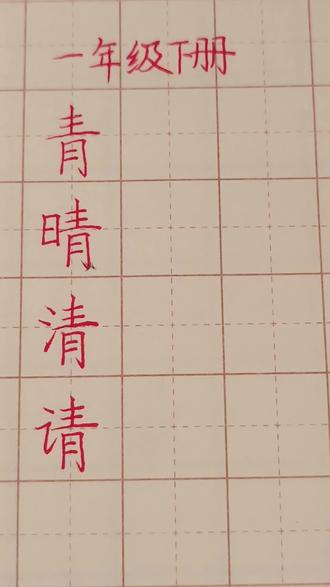 一年级下册
青
晴
清
请